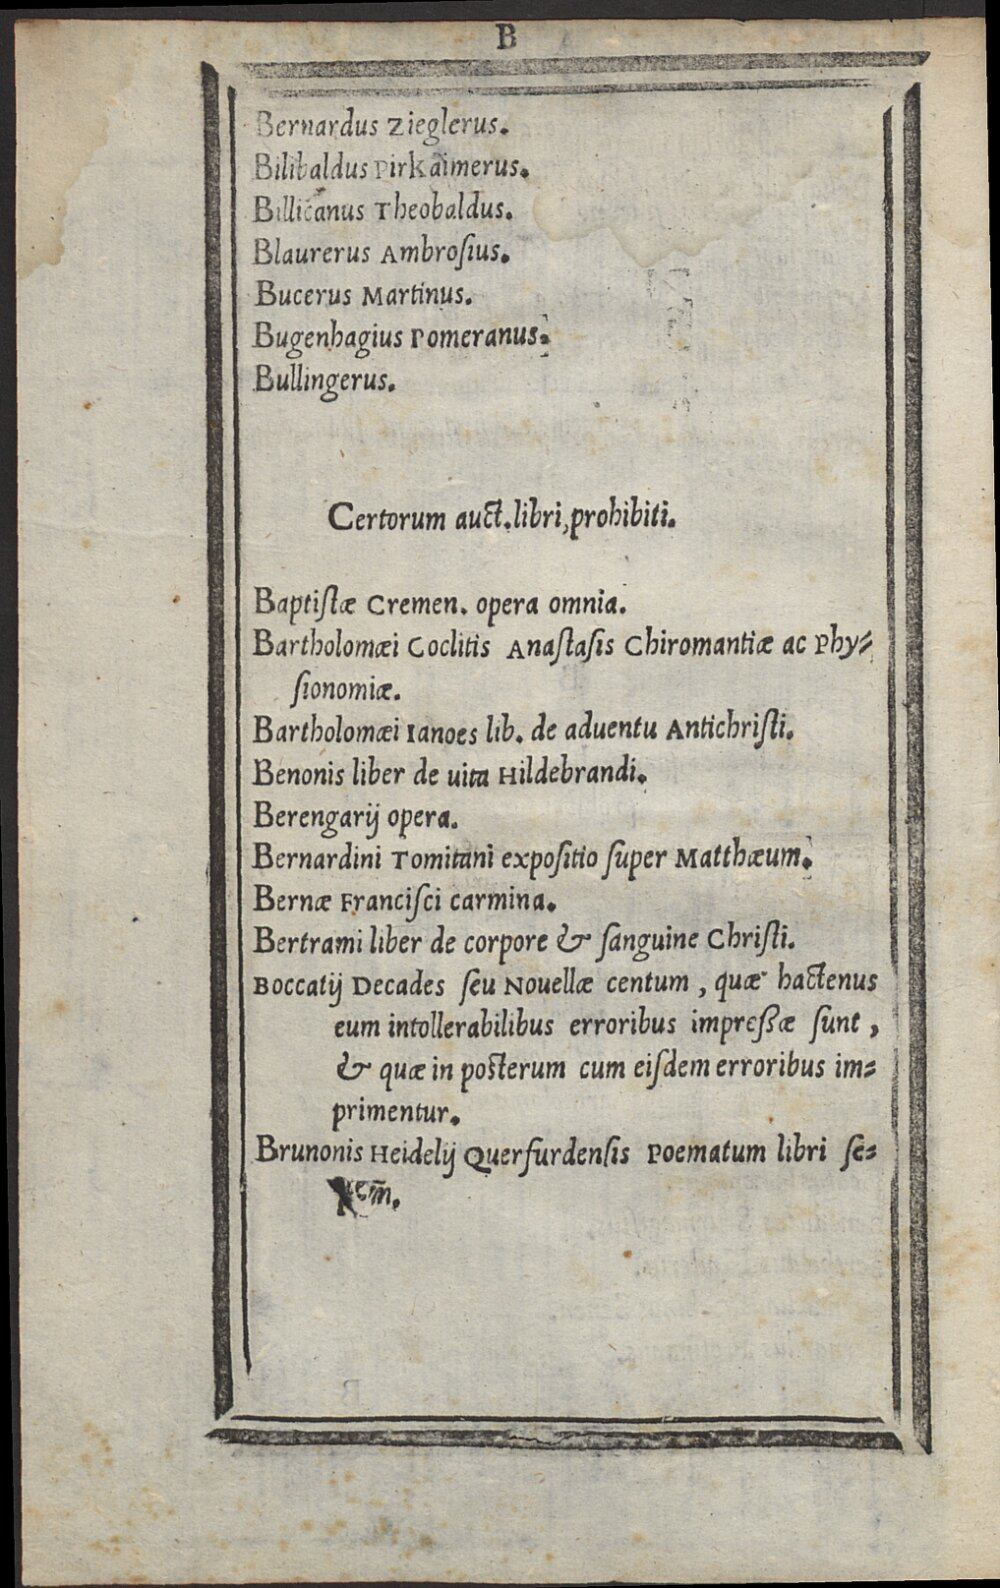 B
Bernardus Zieglerus.
Bilibaldus Pirkaimerus.
Billicanus Theobaldus.
Blaurerus Ambroſius.
Bucerus Martinus.
Bugenhagius Pomeranus.
Bullingerus.
Certorum auct. libri, prohibiti.
Baptiſtæ Cremen. opera omnia.
Bartholomæi Coclitis Anaſtaſis Chiromantiæ ac Phy⸗
ſionomiæ.
Bartholomæi Ianoes lib. de aduentu Antichriſti.
Benonis liber de uita Hildebrandi.
Berengarij opera.
Bernardini Tomitani expoſitio ſuper Matthæum.
Bernæ Franciſci carmina.
Bertrami liber de corpore & ſanguine Chriſti.
Boccatij Decades ſeu Nouellæ centum, quæ hactenus
eum intollerabilibus erroribus impreſſæ ſunt,
& quæ in poſterum cum eiſdem erroribus im⸗
primentur.
Brunonis Heidelij Querfurdenſis Poematum libri ſe⸗